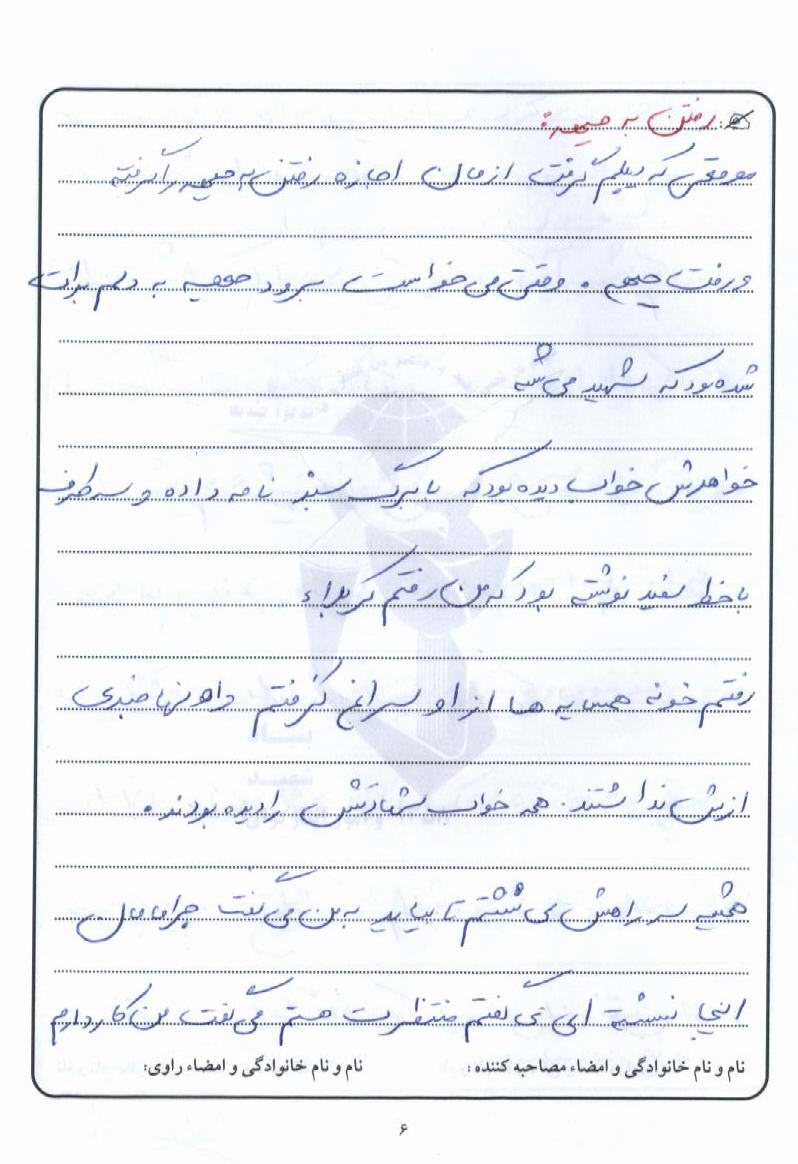 رفتن به جبهه:
موقعی که دیپلم گرفت از مامان اجازه رفتن به جبهه را گرفته
و رفت جبهه . وقتی می خواست برود جبهه به دلم برات
شده بود که شهید می شه
خواهرش خواب دیده بود که با برگ سبز نامه داده و سه طرف
با خط سفید نوشته بود که من رفتم کربلاء
رفتم خونه همسایه ها از او سراغ گرفتم و اونها خبری
ازش نداشتند. همه خواب شهادتش را دیده بودند.
همیشه سر راهش می نشستم تا بیاید به من می گفت چرا مامان
اینجا نشسته ای می گفتم منتظرت هستم می گفت من کار دارم
نام و نام خانوادگی و امضاء مصاحبه کننده :
نام و نام خانوادگی و امضاء راوی:
۶